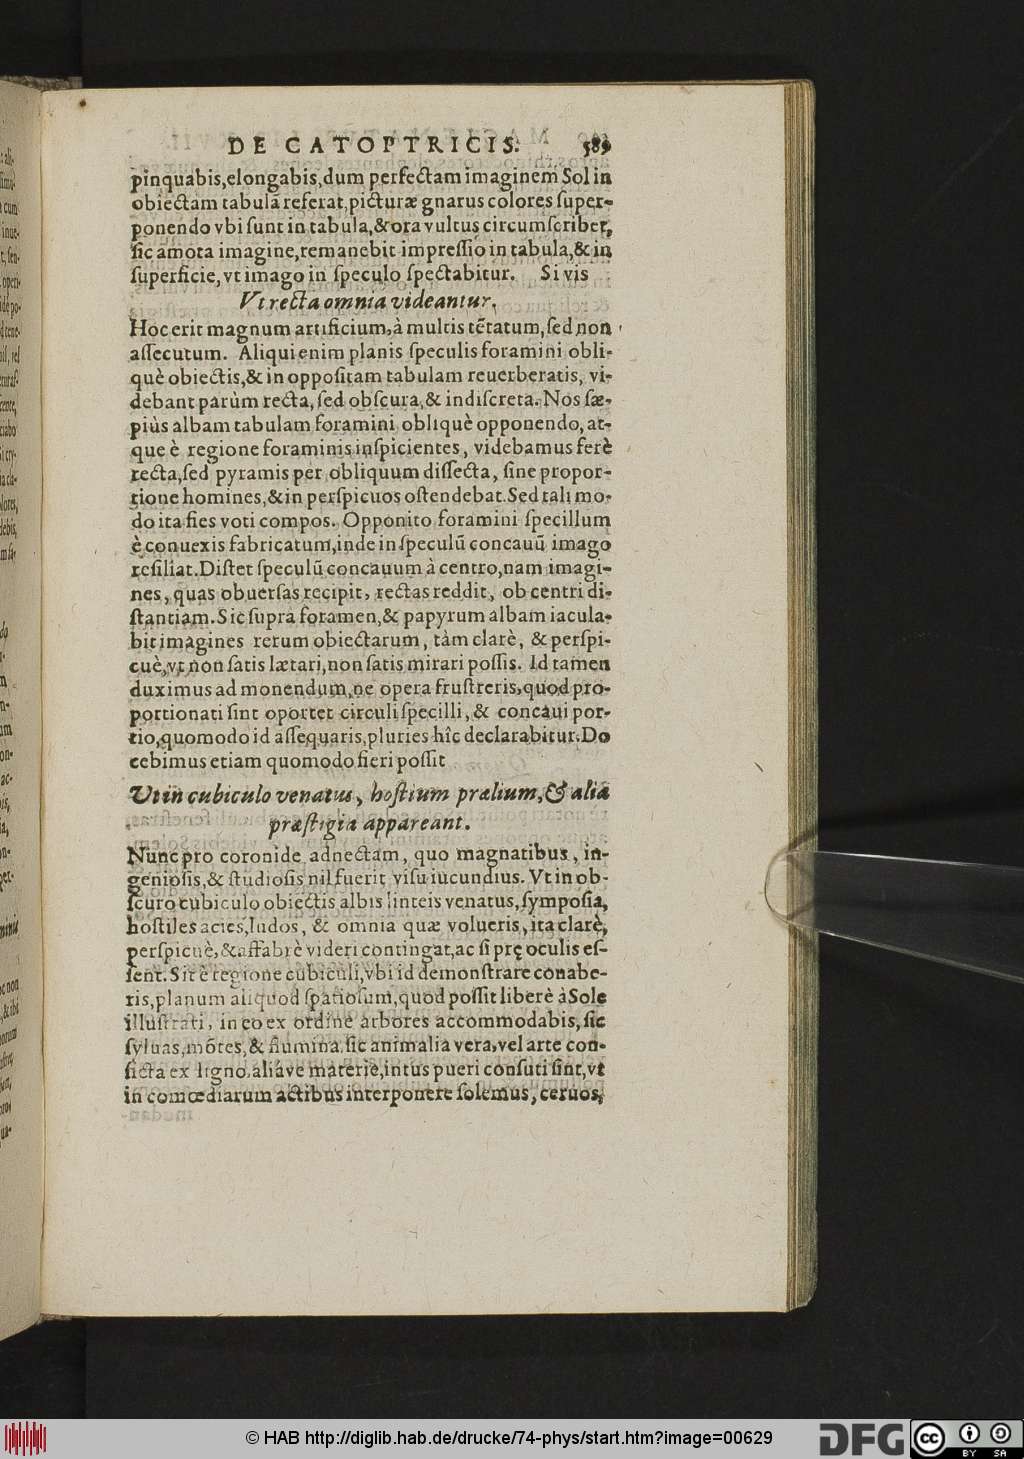 DE CATOPTRICIS. 589
pinquabis, elongabis, dum perfectam imaginem Sol in
obiectam tabulã referat, picturæ gnarus colores super-
ponendo vbi sunt in tabula, & ora vultus circumscribet,
sic amota imagine, remanebit impressio in tabula, & in
superficie, vt imago in speculo spectabitur. Si vis
Vt recta omnia videantur.
Hoc erit magnum artificium, à multis tẽtatum, sed non
assecutum. Aliqui enim planis speculis foramini obli-
què obiectis, & in oppositam tabulam reuerberatis, vi-
debant parùm recta, sed obscura, & indiscreta. Nos sæ-
piùs albam tabulam foramini obliquè opponendo, at-
que è regione foraminis inspicientes, videbamus ferè
recta, sed pyramis per obliquum dissecta, sine propor-
tione homines, & in perspicuos ostendebat. Sed tali mo-
do ita fies voti compos. Opponito foramini specillum
è conuexis fabricatum, inde in speculũ concauũ imago
resiliat. Distet speculũ concauum à centro, nam imagi-
nes, quas obuersas recipit, rectas reddit, ob centri di-
stantiam. Sic supra foramen, & papyrum albam iacula-
bit imagines rerum obiectarum, tàm clarè, & perspi-
cuè, vt non satis lætari, non satis mirari possis. Id tamen
duximus ad monendum, ne opera frustreris, quod pro-
portionati sint oportet circuli specilli, & concaui por-
tio, quomodo id assequaris, pluries hîc declarabitur. Do
cebimus etiam quomodo fieri possit
Vt in cubiculo venatus, hostium prælium, & alia
præstigia appareant.
Nunc pro coronide adnectam, quo magnatibus, in-
geniosis, & studiosis nil fuerit visu iucundius. Vt in ob-
scuro cubiculo obiectis albis linteis venatus, symposia,
hostiles acies, ludos, & omnia quæ volueris, ita clarè,
perspicuè, & affabrè videri contingat, ac si pręoculis es-
sent. Sit è regione cubiculi, vbi id demonstrare conabe-
ris, planum aliquod spatiosum, quod possit liberè à Sole
illustrati, in eo ex ordine arbores accommodabis, sic
syluas, mõtes, & flumina. sic animalia vera, vel arte con-
ficta ex ligno. aliáve materie, intus pueri consuti sint, vt
in comœdiarum actibus interponere solemus, ceruos,
© HAB http://diglib.hab.de/drucke/74-phys/start.htm?image=00629
DFG
cc
BY SA